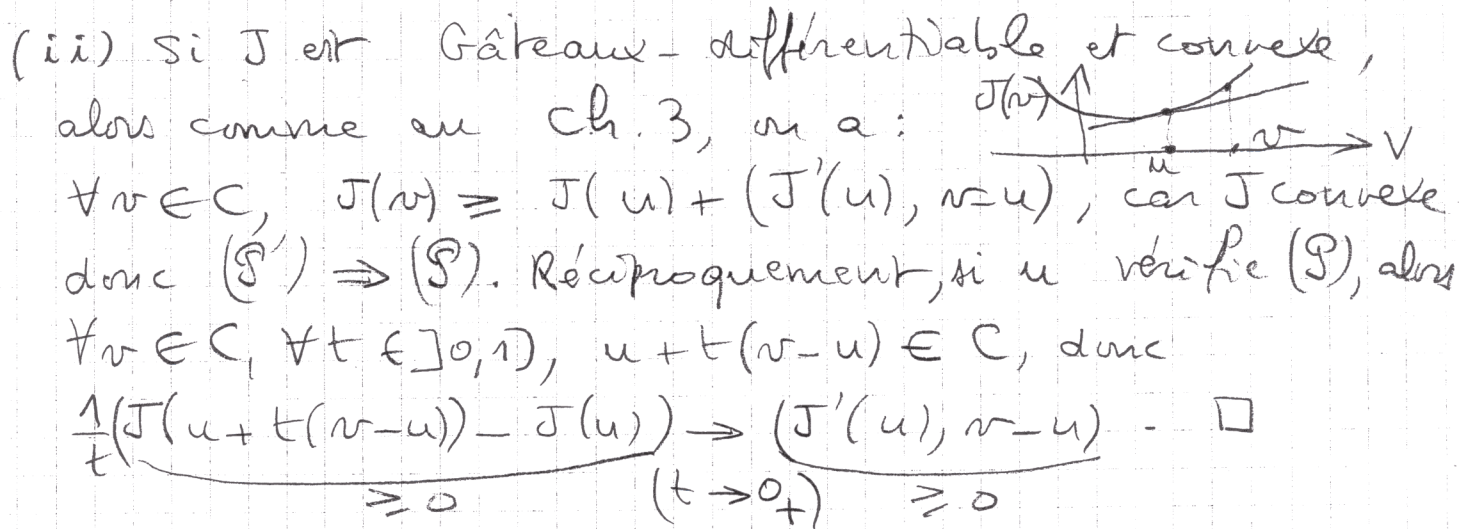 (ii) Si J est Gâteaux-différentiable et convexe,
alors comme au Ch. 3, on a :
J(v) u v V
∀v ∈ C, J(v) ≥ J(u) + (J'(u), v-u), car J convexe
donc (𝒫') ⇒ (𝒫). Réciproquement, si u vérifie (𝒫), alors
∀v ∈ C, ∀t ∈ ]0,1], u + t(v-u) ∈ C, donc
1/t (J(u + t(v-u)) - J(u)) → (J'(u), v-u). □
≥ 0 (t → 0+) ≥ 0